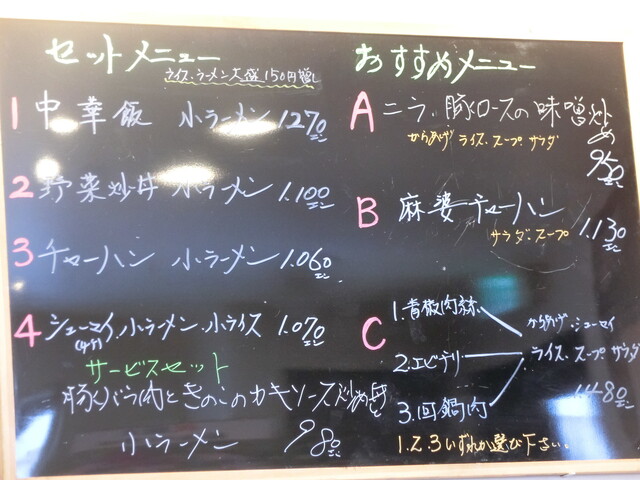 セットメニュー
ライス、ラーメン大盛150円増し
1 中華飯 小ラーメン 1.270エン
2 野菜炒丼 小ラーメン 1.100エン
3 チャーハン 小ラーメン 1.060エン
4 シューマイ、小ラーメン、小ライス 1.070エン
サービスセット
豚バラ肉ときのこのカキソース炒め
小ラーメン 980エン
おすすめメニュー
A ニラ、豚ロースの味噌炒め
からあげ ライス、スープ、サラダ
950エン
B 麻婆チャーハン
サラダ、スープ 1.130エン
C
1.青椒肉絲
2.エビチリ
3.回鍋肉
からあげ、シューマイ
ライス、スープ サラダ
1.480エン
1.2.3いずれか選び下さい。